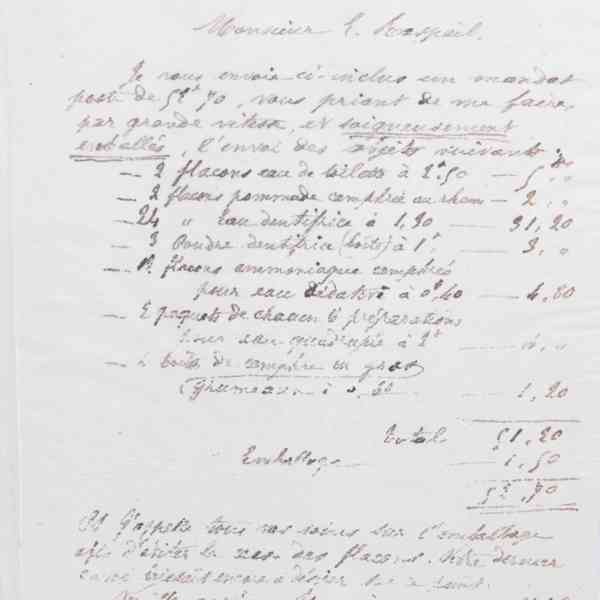 Monsieur E. Raspail.
Je vous envoie ci-inclus un mandat
poste de 52f 70, vous priant de me faire
par grande vitesse, et soigneusement
emballés, l'envoi des objets suivants :
— 2 flacons eau de toilette à 2f.50 — 5, "
— 2 flacons pommade camphrée au rhum — 2, "
— 24 " eau dentifrice à 1,30 — 31,20
— 3 Poudre dentifrice (boîte) à 1f — 3, "
— flacons ammoniaque camphrée
pour eau sédative à 0f.40 — 4,80
— 2 paquets de chacun 6 préparations
pour eau quadruple à 2f — 4, "
— 2 boîtes de camphre en gros
grumeaux à 0,60 — 1,20
Total 51,20
Emballage — 1,50
52,70
PS J'appelle tous vos soins sur l'emballage
afin d'éviter la des flacons. Votre dernier
envoi laissait encore à désirer sur ce point.